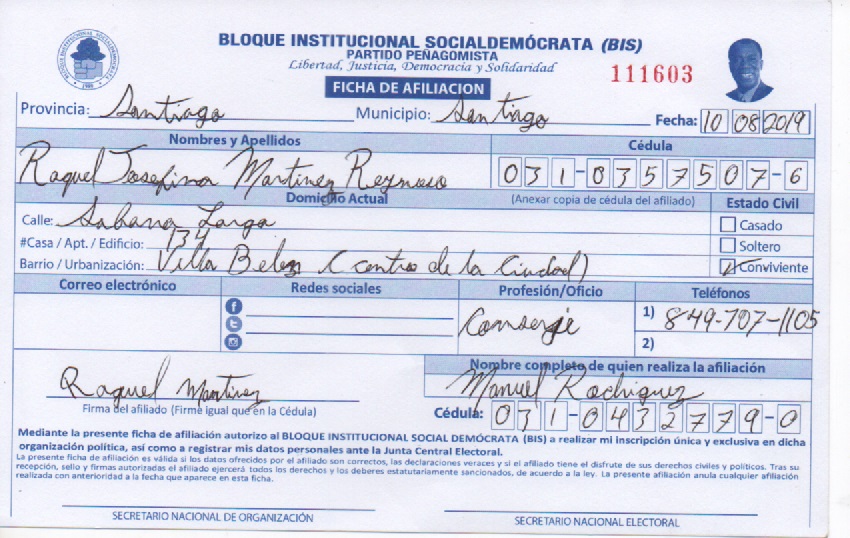 BLOQUE INSTITUCIONAL SOCIALDEMÓCRATA (BIS)
PARTIDO PEÑAGOMISTA
Libertad, Justicia, Democracia y Solidaridad
111603
FICHA DE AFILIACION
Provincia: Santiago Municipio: Santiago Fecha: 10 08 2019
Nombres y Apellidos Cédula
Raquel Josefina Martinez Reynoso 031-0357507-6
Domicilio Actual (Anexar copia de cédula del afiliado) Estado Civil
Calle: Sabana Larga Casado
#Casa / Apt. / Edificio: 134 Soltero
Barrio / Urbanización: Villa Belen (Centro de la Ciudad) Conviviente
Correo electrónico Redes sociales Profesión/Oficio Teléfonos
Conserje 1) 849-707-1105
2)
Nombre completo de quien realiza la afiliación
Raquel Martinez Manuel Rodriguez
Firma del afiliado (Firme igual que en la Cédula) Cédula: 031-0432779-0
Mediante la presente ficha de afiliación autorizo al BLOQUE INSTITUCIONAL SOCIAL DEMÓCRATA (BIS) a realizar mi inscripción única y exclusiva en dicha
organización política, así como a registrar mis datos personales ante la Junta Central Electoral.
La presente ficha de afiliación es válida si los datos ofrecidos por el afiliado son correctos, las declaraciones veraces y si el afiliado tiene el disfrute de sus derechos civiles y políticos. Tras su
recepción, sello y firmas autorizadas el afiliado ejercerá todos los derechos y los deberes estatutariamente sancionados, de acuerdo a la ley. La presente afiliación anula cualquier afiliación
realizada con anterioridad a la fecha que aparece en esta ficha.
SECRETARIO NACIONAL DE ORGANIZACIÓN SECRETARIO NACIONAL ELECTORAL